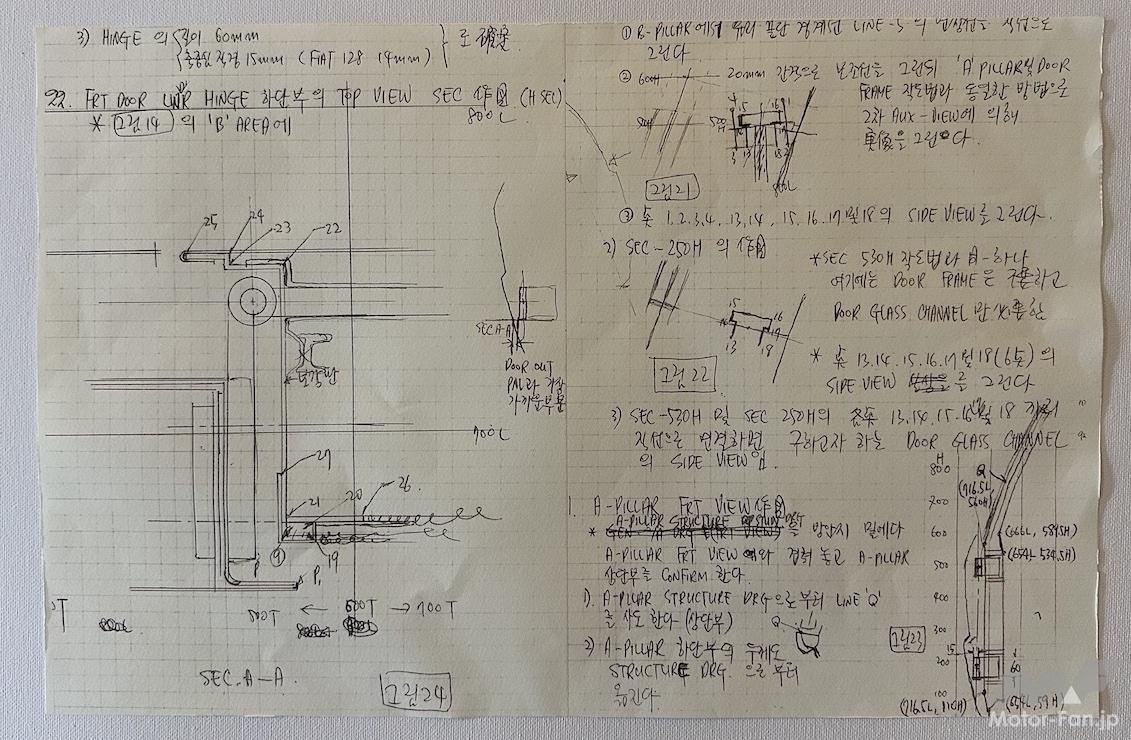 3) HINGE 의 길이 60mm
직경 15mm (FIAT 128 14mm) 로 確定
22. FRT DOOR LWR HINGE 하단부의 TOP VIEW SEC 作図 (H SEC)
* 그림14 의 'B' AREA에
800L
25
24
23
22
SEC A-A
DOOR OUT
PNL과 가장
가까운부분
* 보강판
700L
27
21
20
26
19
P1
T
500T ← 600T → 700T
SEC. A-A.
그림24
① B-PILLAR에서 유리 끝단 경계선 LINE-S 의 연장선을 직선으로
그린다
② 600H
20mm 간격으로 보조선을 그린뒤 'A' PILLAR 및 DOOR
FRAME 작도법과 동일한 방법으로
2차 AUX-VIEW에 의해
実像을 그린다.
15
16
13
18
그림21
③ 点 1.2.3.4. 13,14, 15.16.17 및 18 의 SIDE VIEW를 그린다.
2) SEC-250H 의 作図
* SEC 530H 작도법과 同一하나
여기에는 DOOR FRAME은 하고
DOOR GLASS CHANNEL 만 作図함
15
16
13
18
그림22
* 点 13.14.15.16.17 및 18 (6点) 의
SIDE VIEW 를 그린다
3) SEC-530H 및 SEC 250H의 各点 13.14.15.16 및 18 끼리
직선으로 연결하면 구하고자 하는 DOOR GLASS CHANNEL
의 SIDE VIEW 임.
1. A-PILLAR FRT VIEW 作図
A-PILLAR STRUCTURE
* 를 방안지 밑에다
A-PILLAR FRT VIEW 와 겹쳐 놓고 A-PILLAR
상단부를 CONFIRM 한다.
1). A-PILLAR STRUCTURE DRG으로부터 LINE 'Q'
를 사도 한다 (상단부)
Q
2) A-PILLAR 하단부의 두께도
STRUCTURE DRG. 으로부터
옮긴다.
그림23
H
800
700
600
500
400
300
200
100
Q
(716.5L,
560H)
(666L, 589.5H)
(654L, 534.5H)
15
60
(716.5L, 110H)
(654L, 59H)
Motor-Fan.jp